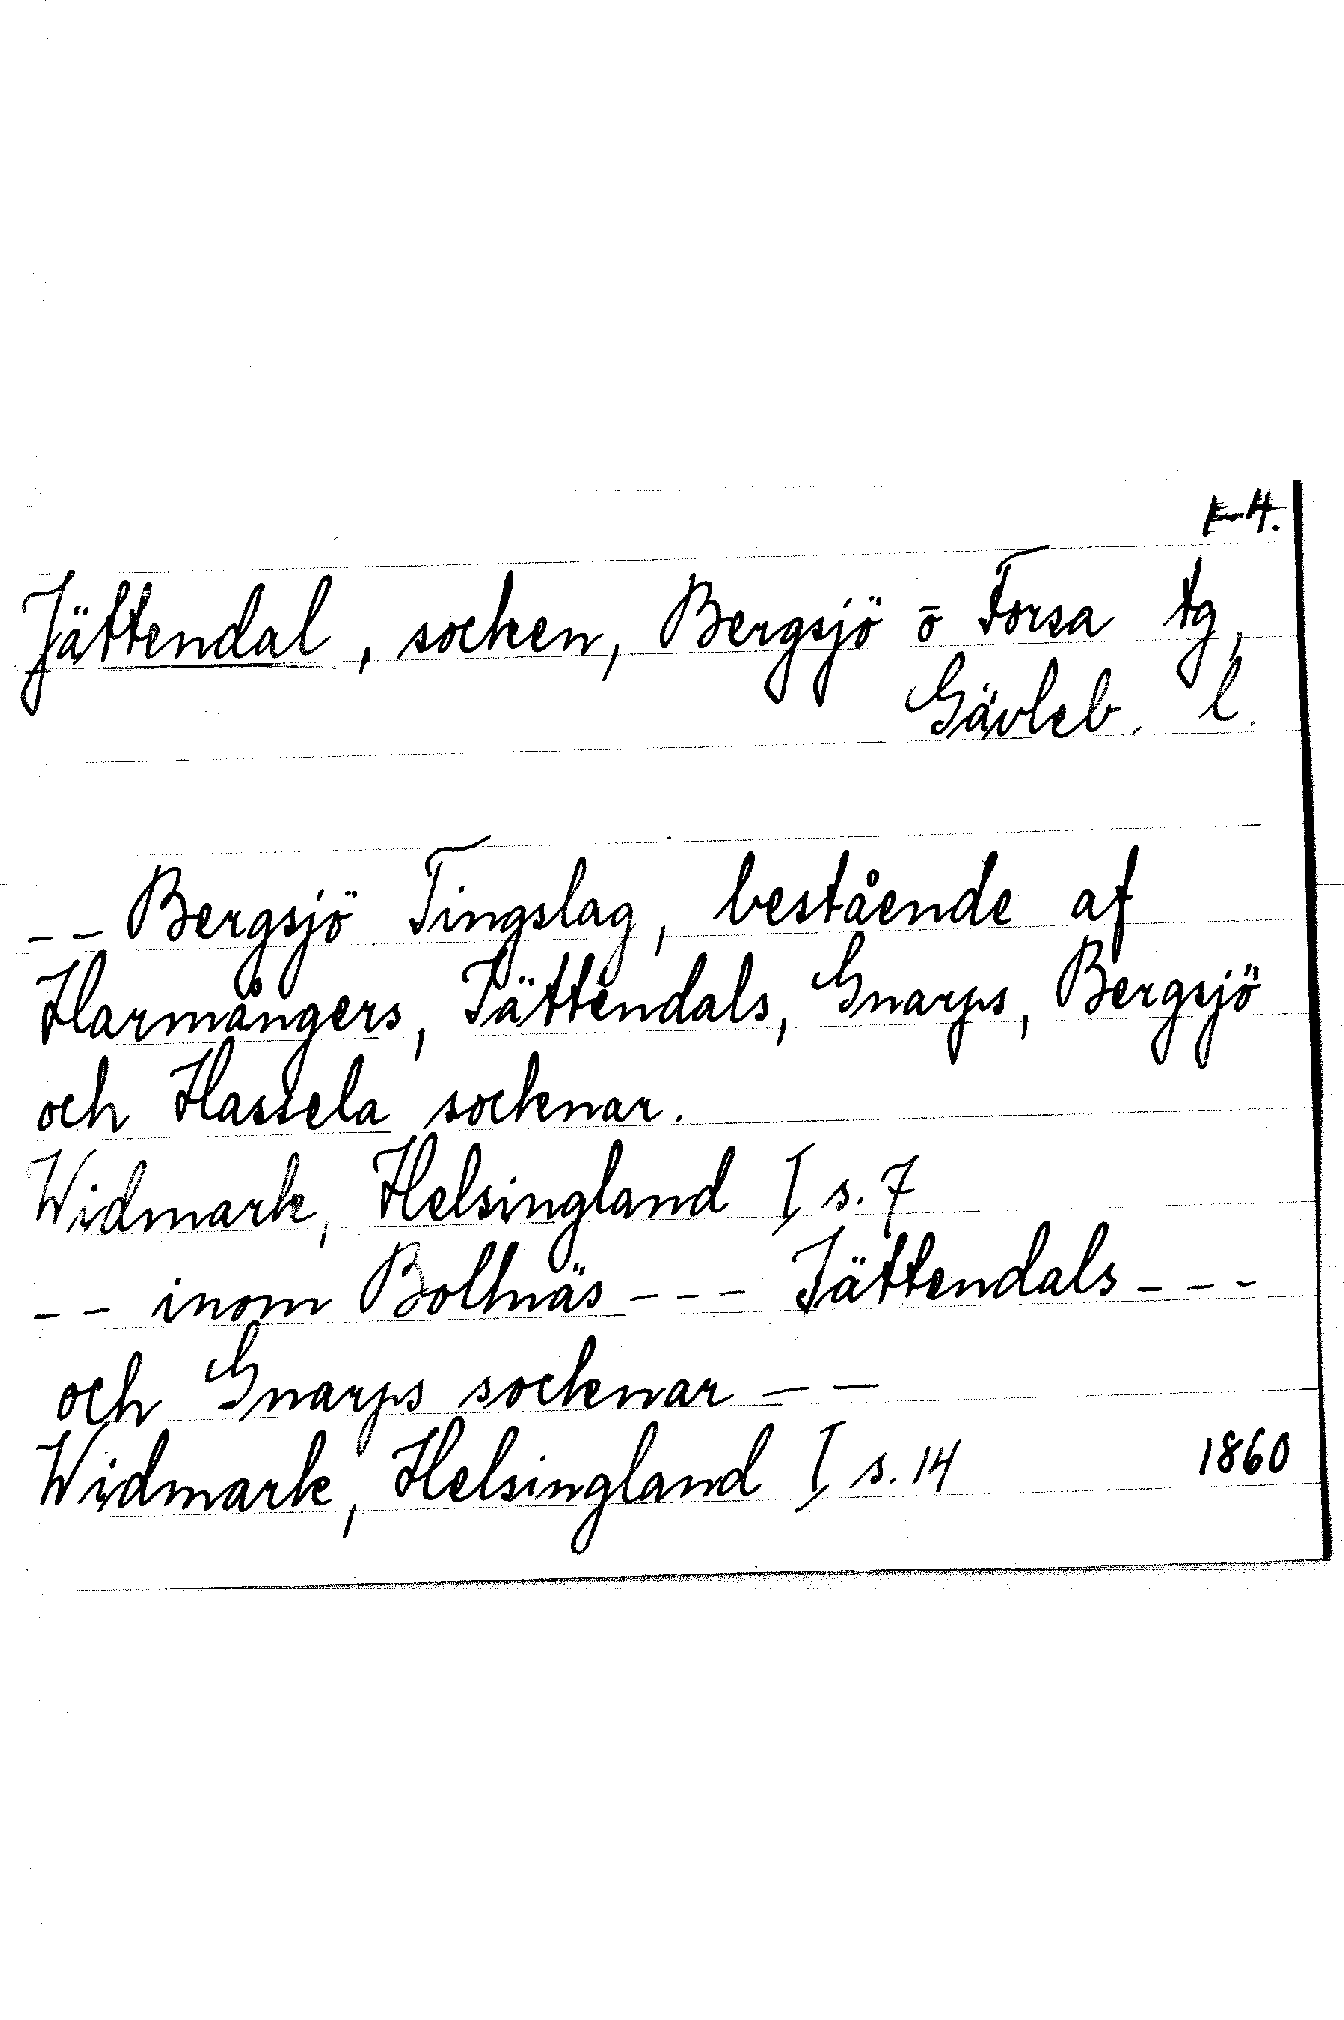 Jättendal, socken, Bergsjö o Forsa tg,
Gävleb. l.
-- Bergsjö Tingslag, bestående af
Harmångers, Jättendals, Gnarps, Bergsjö
och Hassela socknar.
Widmark, Helsingland I s. 7
-- inom Bollnäs --- Jättendals ---
och Gnarps socknar --
Widmark, Helsingland I s. 14 1860